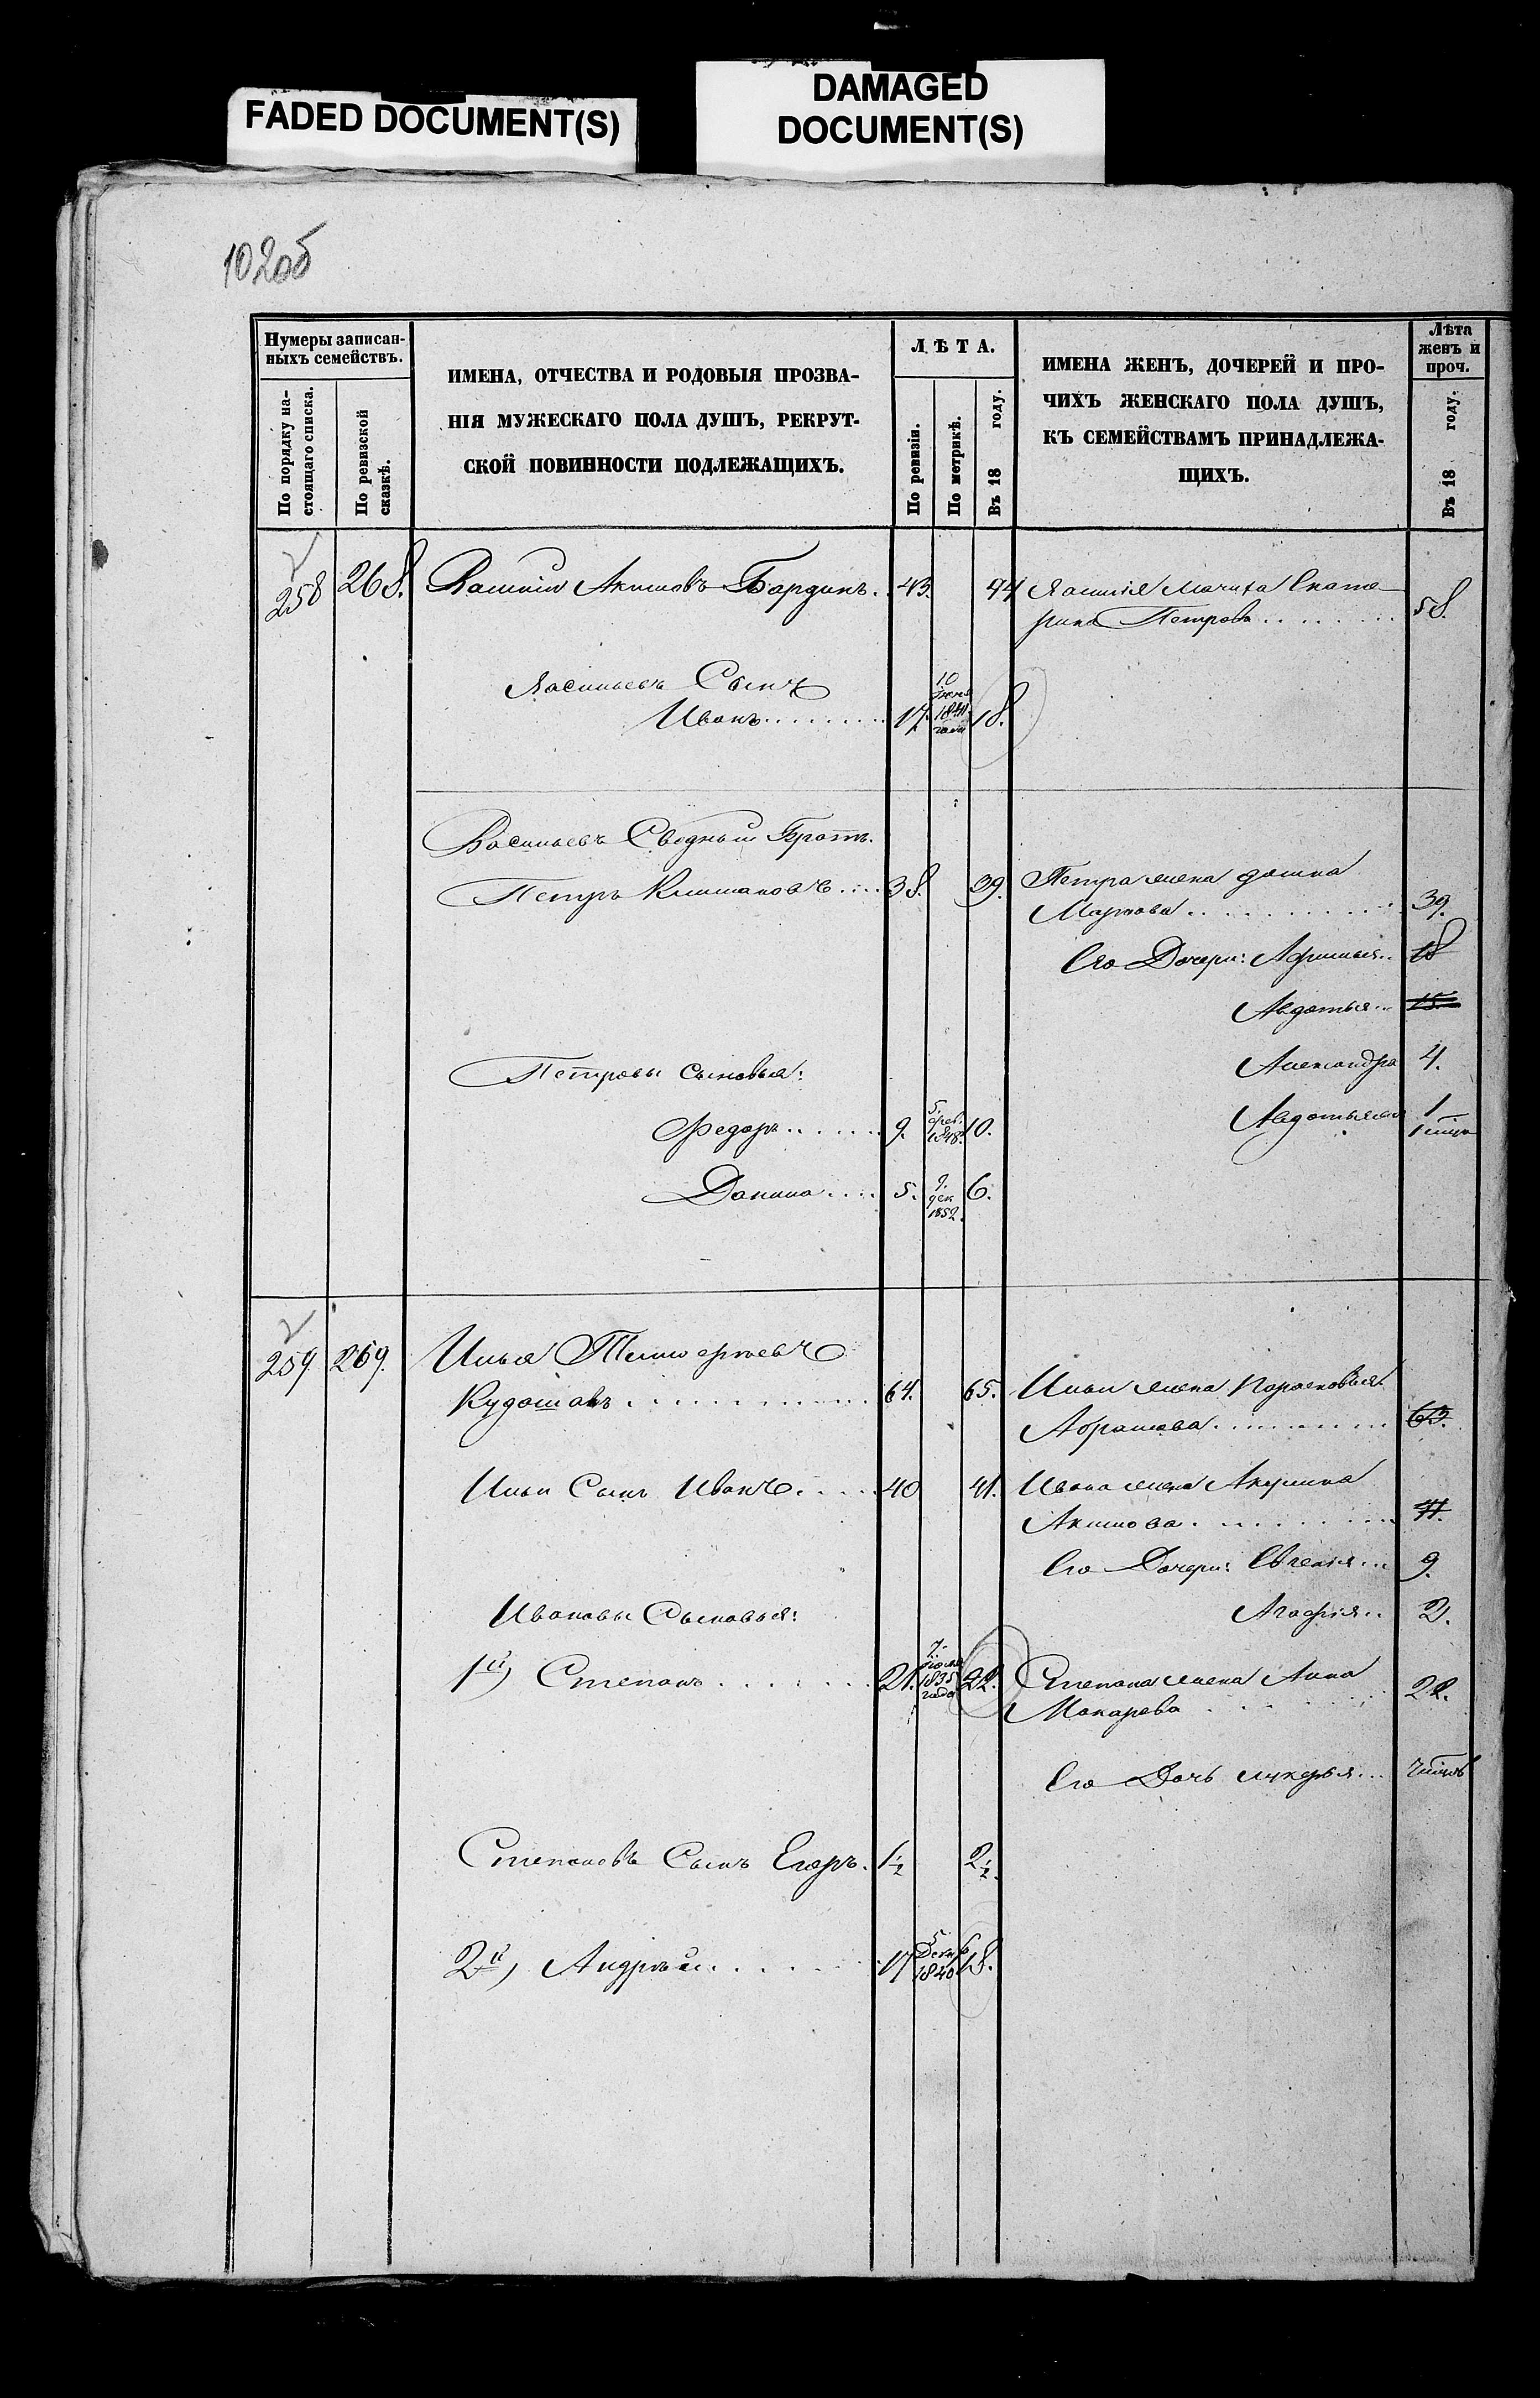 FADED DOCUMENT(S)
DAMAGED
DOCUMENT(S)
102об
Нумеры записан-
ныхъ семействъ.
По порядку на-
стоящаго списка.
По ревизской
сказкѣ.
ИМЕНА, ОТЧЕСТВА И РОДОВЫЯ ПРОЗВА-
НІЯ МУЖЕСКАГО ПОЛА ДУШЪ, РЕКРУТ-
СКОЙ ПОВИННОСТИ ПОДЛЕЖАЩИХЪ.
ЛѢТА.
По ревизіи.
По метрикѣ.
Въ 18 году.
ИМЕНА ЖЕНЪ, ДОЧЕРЕЙ И ПРО-
ЧИХЪ ЖЕНСКАГО ПОЛА ДУШЪ,
КЪ СЕМЕЙСТВАМЪ ПРИНАДЛЕЖА-
ЩИХЪ.
Лѣта
женъ и
проч.
Въ 18 году.
258 268. Василій Акимовъ Бардинъ. 43. 44 Василія Мачиха Екате-
рина Петрова 58.
Васильевъ Сынъ
Иванъ 17. 10 1841 года 18.
Васильевъ Сводный Братъ.
Петръ 38. 39. Петра жена
Маркова 39.
Его Дочери: Афимья 18
Авдотья 15.
Петровы сыновья: Александра 4.
Федоръ 9. 5. фев. 1848. 10. Авдотья 1
Данила 5. 9. дек 1852. 6.
259. 269. Илья
Кудашовъ 64. 65. Ильи жена Парасковья
Абрамова 63.
Ильи Сынъ Иванъ 40 41. Ивана жена Акулина
Акимова 41.
Его Дочери: Евгенія 9.
Ивановы Сыновья: Агафія 2.
1й) Степанъ 21. 7. 1835 года 22. Степана жена Анна
Макарева 22.
Его Дочь Лукерья
Степановъ Сынъ Егоръ. 1½ 2½.
2й) Андрей 17 5 Декаб 1840 18.